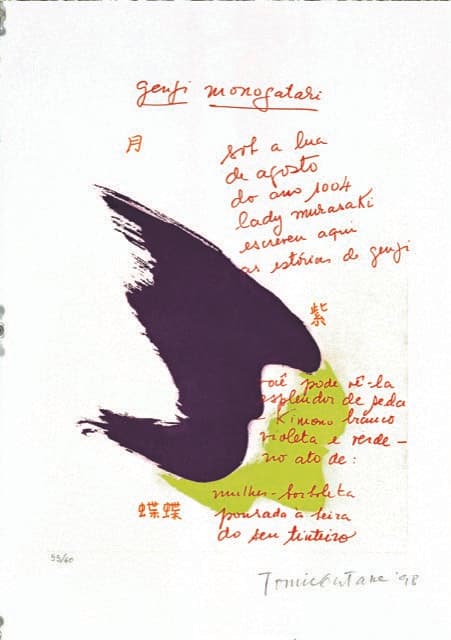 genji monogatari
月
sob a lua
de agosto
do ano 1004
lady murasaki
escreveu aqui
as estórias de genji
紫
você pode vê-la
esplendor de seda
- Kimono branco
violeta e verde -
no ato de:
mulher-borboleta
pousada à beira
do seu tinteiro
蝶蝶
55/60
Tomie Ohtake '98